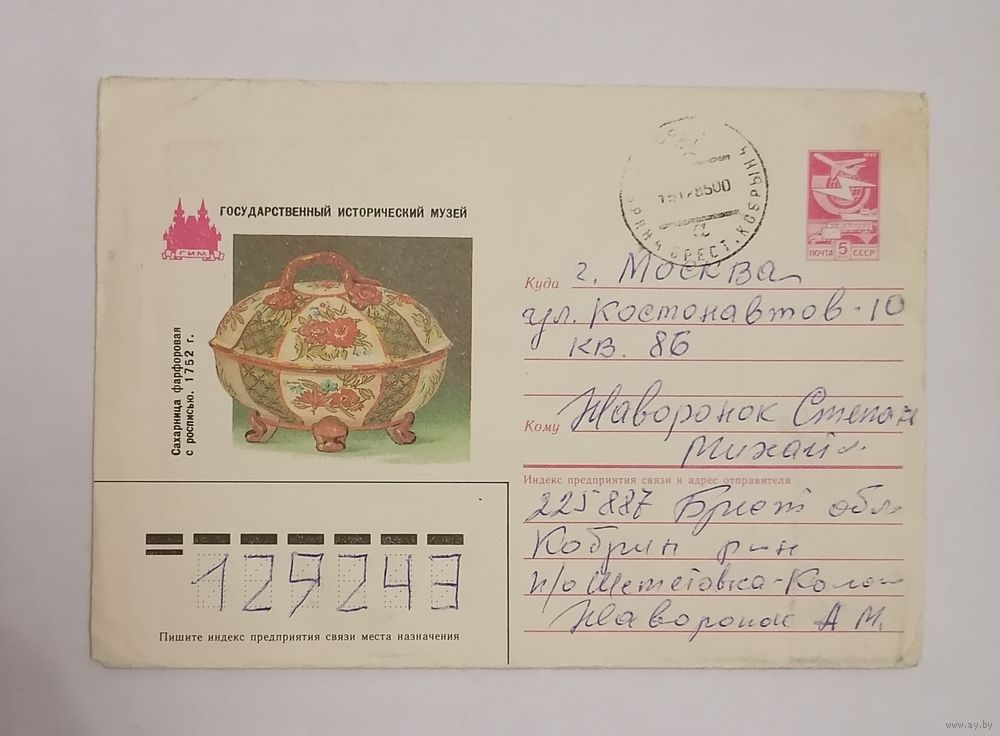 ГОСУДАРСТВЕННЫЙ ИСТОРИЧЕСКИЙ МУЗЕЙ
ГИМ
Сахарница фарфоровая
с росписью. 1752 г.
БРЕСТ. КОБРЫН
ПОЧТА 5 СССР
Куда г. Москва
ул. Костонавтов-10
кв. 86
Кому Жаворонок Степан
Михайл.
Индекс предприятия связи и адрес отправителя
225887 Брест обл
Кобрин р-н
п/о
Жаворонок А М.
129243
Пишите индекс предприятия связи места назначения
www.ay.by